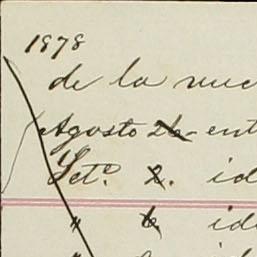 1878
de la nue
Agosto 26 - ent
Set.e 2. id
" 6. ide